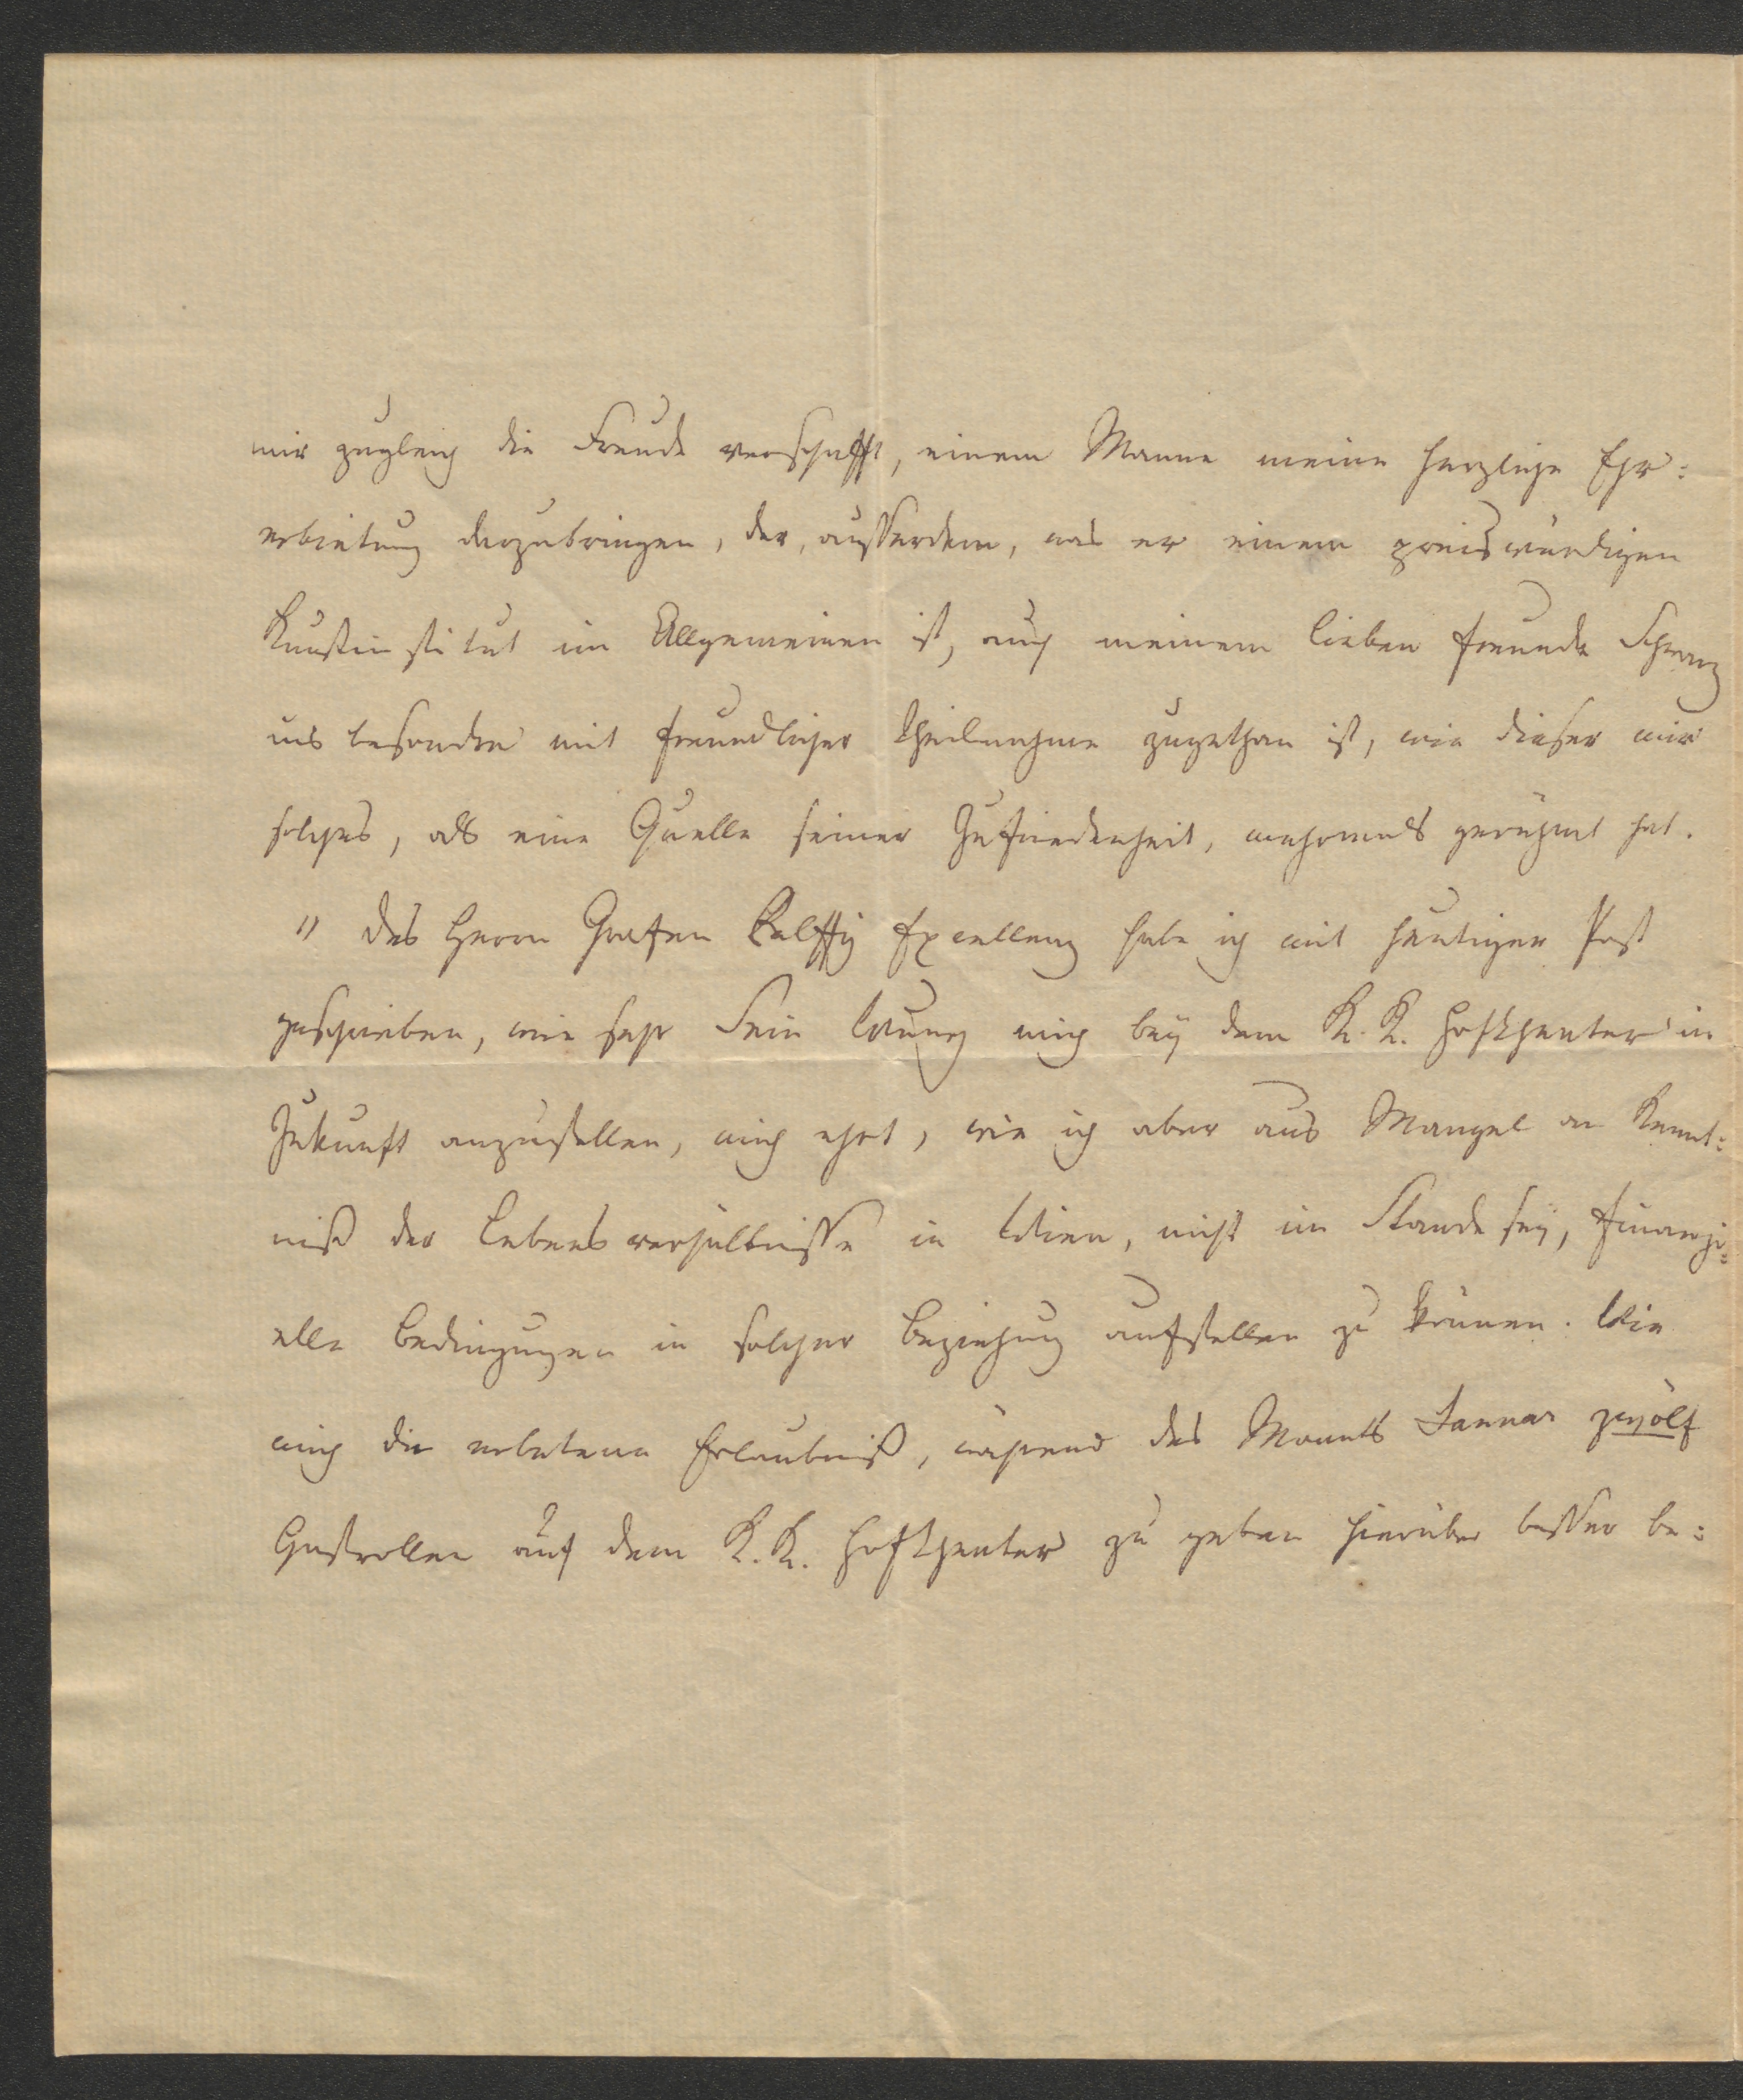 mir zugleich die Freude verschafft, einem Manne meine herzliche Ehr:
erbietung darzubringen, der, ausserdem, was er einem preiswürdigen
Kunstinstitut im Allgemeinen ist, auch meinem lieben Freunde
ins besondre mit freundlicher Theilnahme zugethan ist, wie dieser mir
solches, als eine Quelle seiner Zufriedenheit, mehrmals gerühmt hat.
" Des Herrn Grafen Palffy Excellenz habe ich mit heutiger Post
geschrieben, wie sehr Sein Wunsch mich bey dem K. K. Hoftheater in
Zukunft anzustellen, mich ehrt, wie ich aber aus Mangel an Kennt:
niß der Lebensverhältnisse in Wien, nicht im Stande sey, finanzi:
elle Bedingungen in solcher Beziehung aufstellen zu können. Wie
mich die erbetene Erlaubniß, während des Monats Januar zwölf
Gastrollen auf dem K. K. Hoftheater zu geben hierüber besser be: